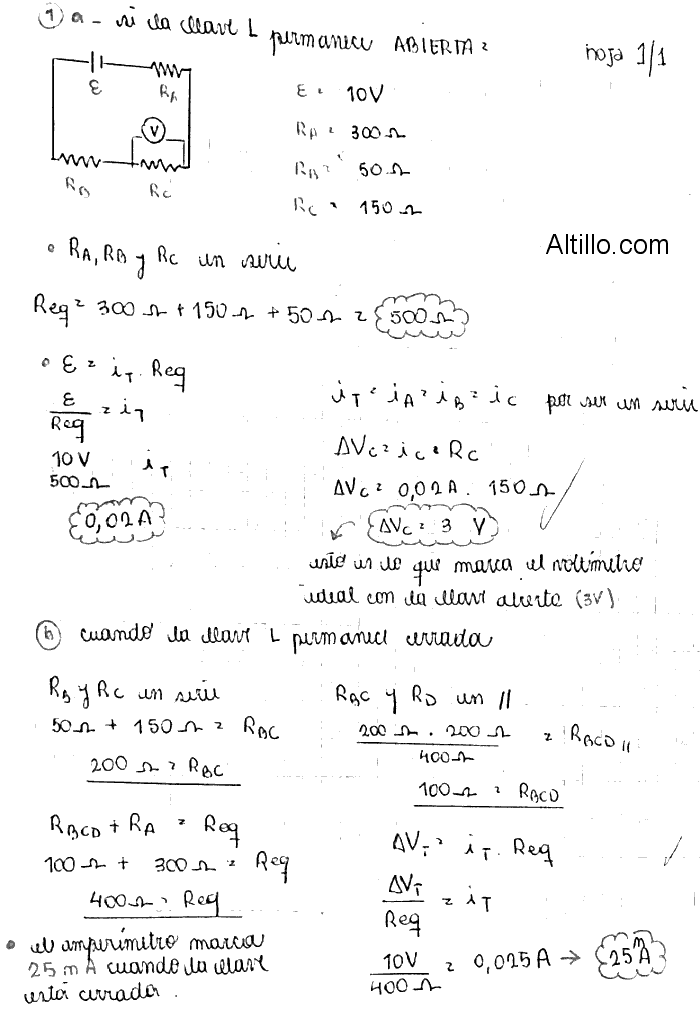 1) a - si la llave L permanece ABIERTA =
hoja 1/1
ε
R_A
V
R_B
R_C
ε = 10V
R_A = 300 Ω
R_B = 50 Ω
R_C = 150 Ω
Altillo.com
• R_A, R_B y R_C en serie
Req = 300 Ω + 150 Ω + 50 Ω = 500 Ω
• ε = i_T . Req
ε/Req = i_T
10V/500Ω i_T
0,02A
i_T = i_A = i_B = i_C por ser en serie
ΔV_C = i_C . R_C
ΔV_C = 0,02A . 150 Ω
ΔV_C = 3 V
esto es lo que marca el voltímetro
ideal con la llave abierta (3V)
b) cuando la llave L permanece cerrada
R_B y R_C en serie
50 Ω + 150 Ω = R_BC
200 Ω = R_BC
R_BC y R_D en //
200 Ω . 200 Ω / 400 Ω = R_BCD //
100 Ω = R_BCD
R_BCD + R_A = Req
100 Ω + 300 Ω = Req
400 Ω = Req
• el amperímetro marca
25 mA cuando la llave
está cerrada.
ΔV_T = i_T . Req
ΔV_T/Req = i_T
10V/400 Ω = 0,025A → 25 mA